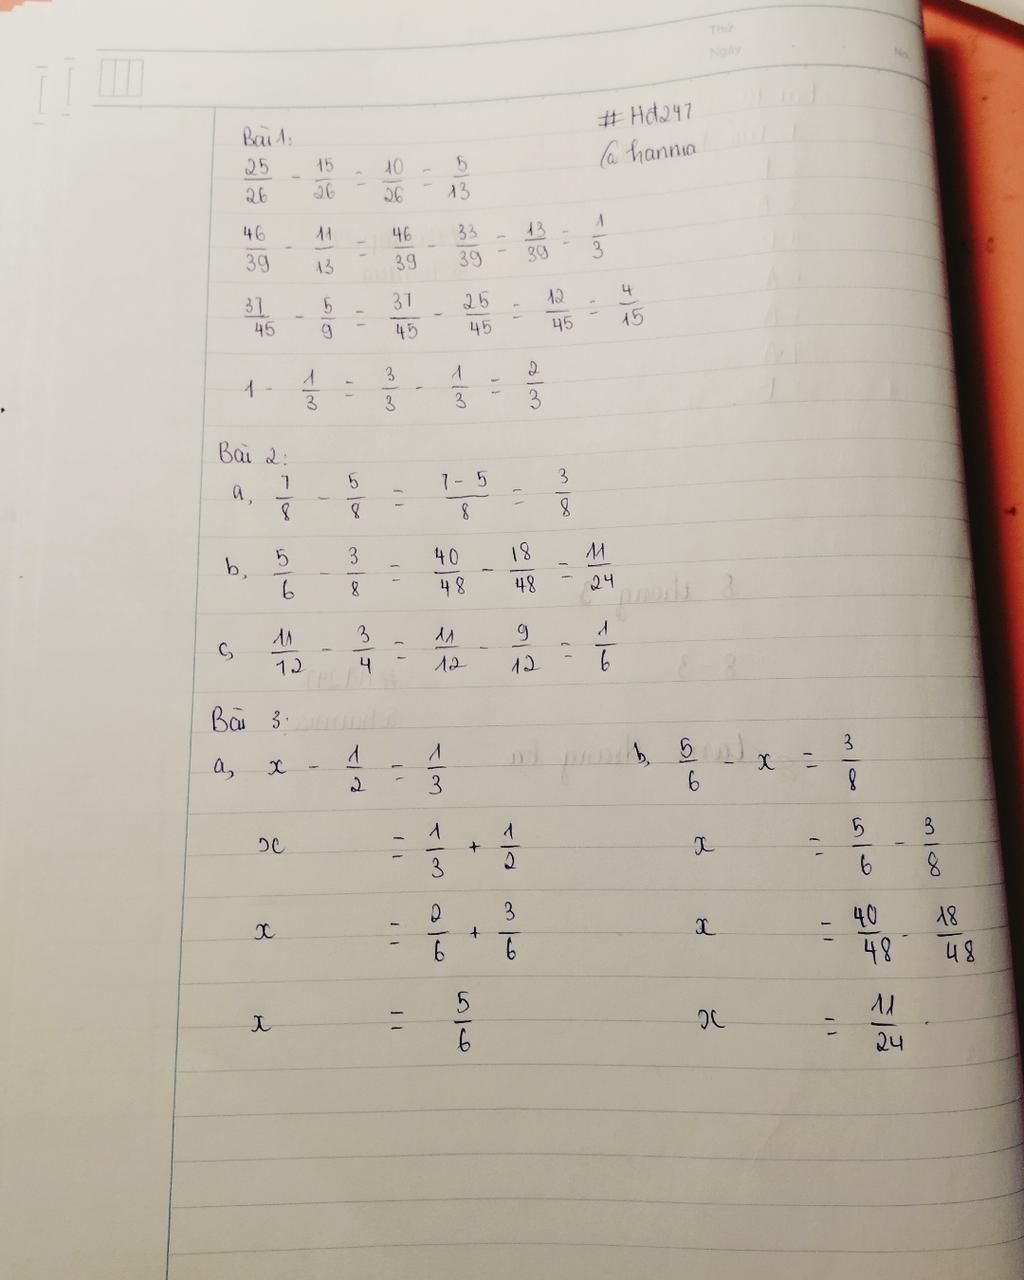 Thứ
Ngày No.
Bài 1: # Hđ247
@ hannia
25/26 - 15/26 = 10/26 = 5/13
46/39 - 11/13 = 46/39 - 33/39 = 13/39 = 1/3
37/45 - 5/9 = 37/45 - 25/45 = 12/45 = 4/15
1 - 1/3 = 3/3 - 1/3 = 2/3
Bài 2:
a, 7/8 - 5/8 = 7-5/8 = 3/8
b, 5/6 - 3/8 = 40/48 - 18/48 = 11/24
c, 11/12 - 3/4 = 11/12 - 9/12 = 1/6
Bài 3:
a, x - 1/2 = 1/3 b, 5/6 - x = 3/8
x = 1/3 + 1/2 x = 5/6 - 3/8
x = 2/6 + 3/6 x = 40/48 - 18/48
x = 5/6 x = 11/24.